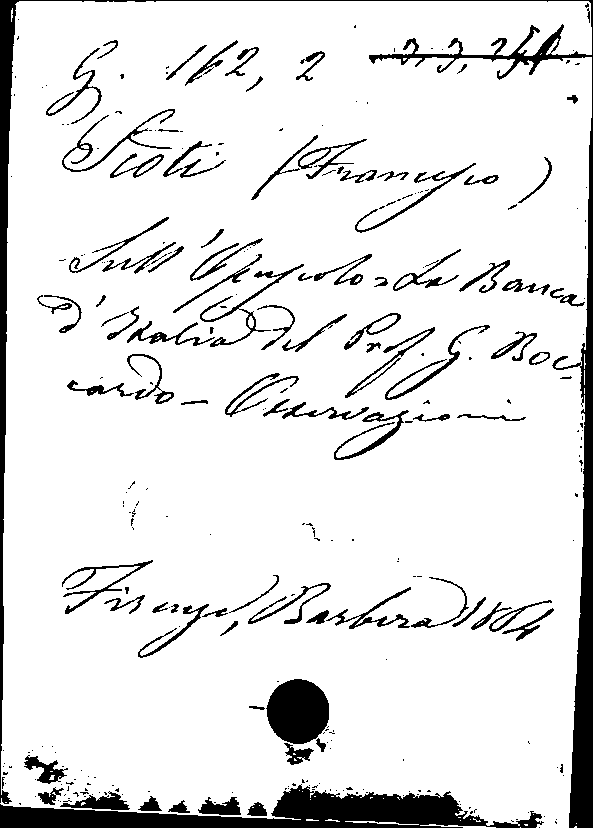 G. 162, 2 3, 3, 251
Scoti (Francesco)
Sull' Opuscolo = La Banca
d'Italia del Prof. G. Boc=
cardo - Osservazioni
Firenze, Barbera 1864